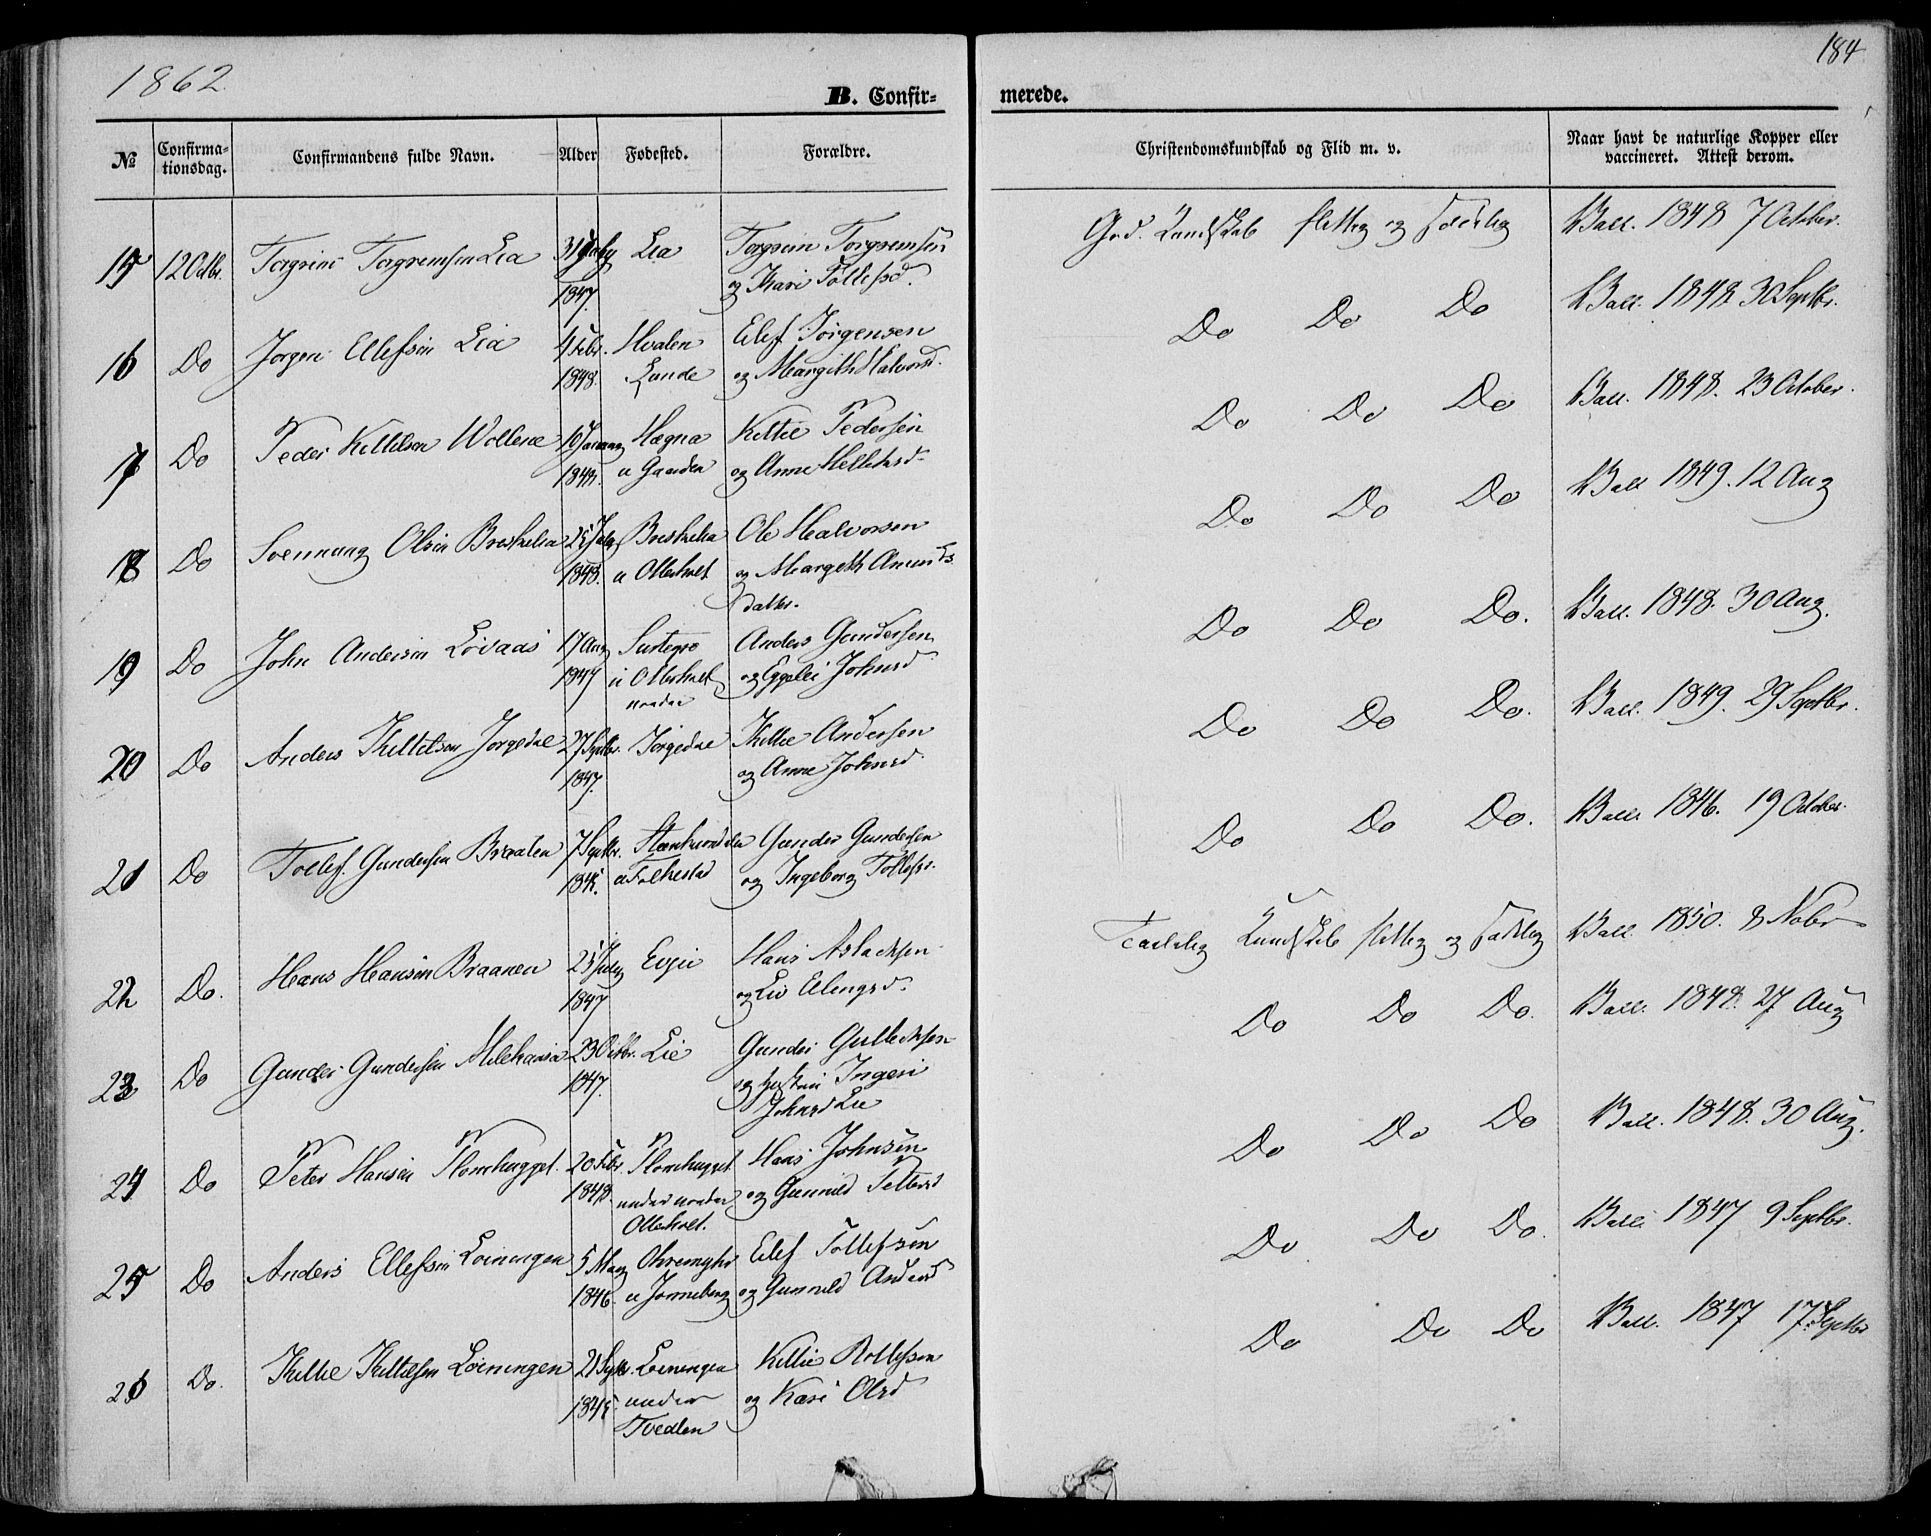 1862.
184
B. Confir-
merede.
№ Confirma-tionsdag. Confirmandens fulde Navn. Alder Fødested. Forældre. Christendomskundskab og Flid m. v. Naar havt de naturlige Kopper eller vaccineret. Attest derom.
15 12 Octbr. Torgrim Torgremsen Lia 31 1847. Lia Torgrim Torgremsen og Kari Tollefsd. God Kundskab flittig og sædelig Vall. 1848 7 October.
16 Do Jørgen Ellefsen Lia 4 Febr. 1848. Hvalen Lande Elef Jørgensen og Margith Halvorsd. Do Do Do Vall. 1848 30 Septbr.
17 Do Peder Kittelsen Wollene 16 January 1848. Hægna u Gaarden Kittil Pedersen og Anne Do Do Do Vall. 1848. 23 October.
18 Do Svennung Olsen Breskelia 25 July 1848. Breskelia u Otterholt Ole Halvorsen og Margeth Amunds datter. Do Do Do Vall 1849. 12 Aug
19 Do John Andersen Løvaas 17 Aug 1847 u Otterholt nordre Anders Gundersen og Eggelei Johnsd Do Do Do. Vall. 1848. 30 Aug.
20 Do Anders Kittelsen Jørgedal 27 Septbr. 1847. Jørgedal Kittil Andersen og Anne Johnsd. Do Do Do. Vall. 1849. 29 Septbr.
21 Do Tollef Gundersen Braaten 7 Septbr. u Folkestad Gunder Gundersen og Ingeborg Tollefsd. Do Do Do. Vall. 1846. 19 Octbr.
22 Do. Hans Hansen Braanen 25 July 1847 Evju Hans Aslachsen og Liv Elingsd. Taalelig Kundskab flittig og sædelig Vall. 1850. 8 Nobr
23 Do Gunder Gundersen 23 Octbr. 1847. Lie Gunder Gullechsen og hustru Ingeri Johnsd Lie Do Do Do. Vall. 1848. 27 Aug
24 Do Peter Hansen Plomhugget. 20 Febr 1848. Plomhugget under nordre Otterholt. Hans Johnsen og Gunnild Do Do Do Vall. 1848. 30 Aug.
25 Do Anders Ellefsen Loeningen 5 May 1846. Ohremyhr u Jønneberg Elef Tollefsen og Gunnild Andersd Do Do Do. Vall. 1847 9 Septbr.
26 Do. Kittil Kittelsen Loeningen 21 Septbr. 1845 Loeningen under Tvedten Kittil Rollefsen og Kari Olsd Do Do Do Vall. 1847 17 Septbr